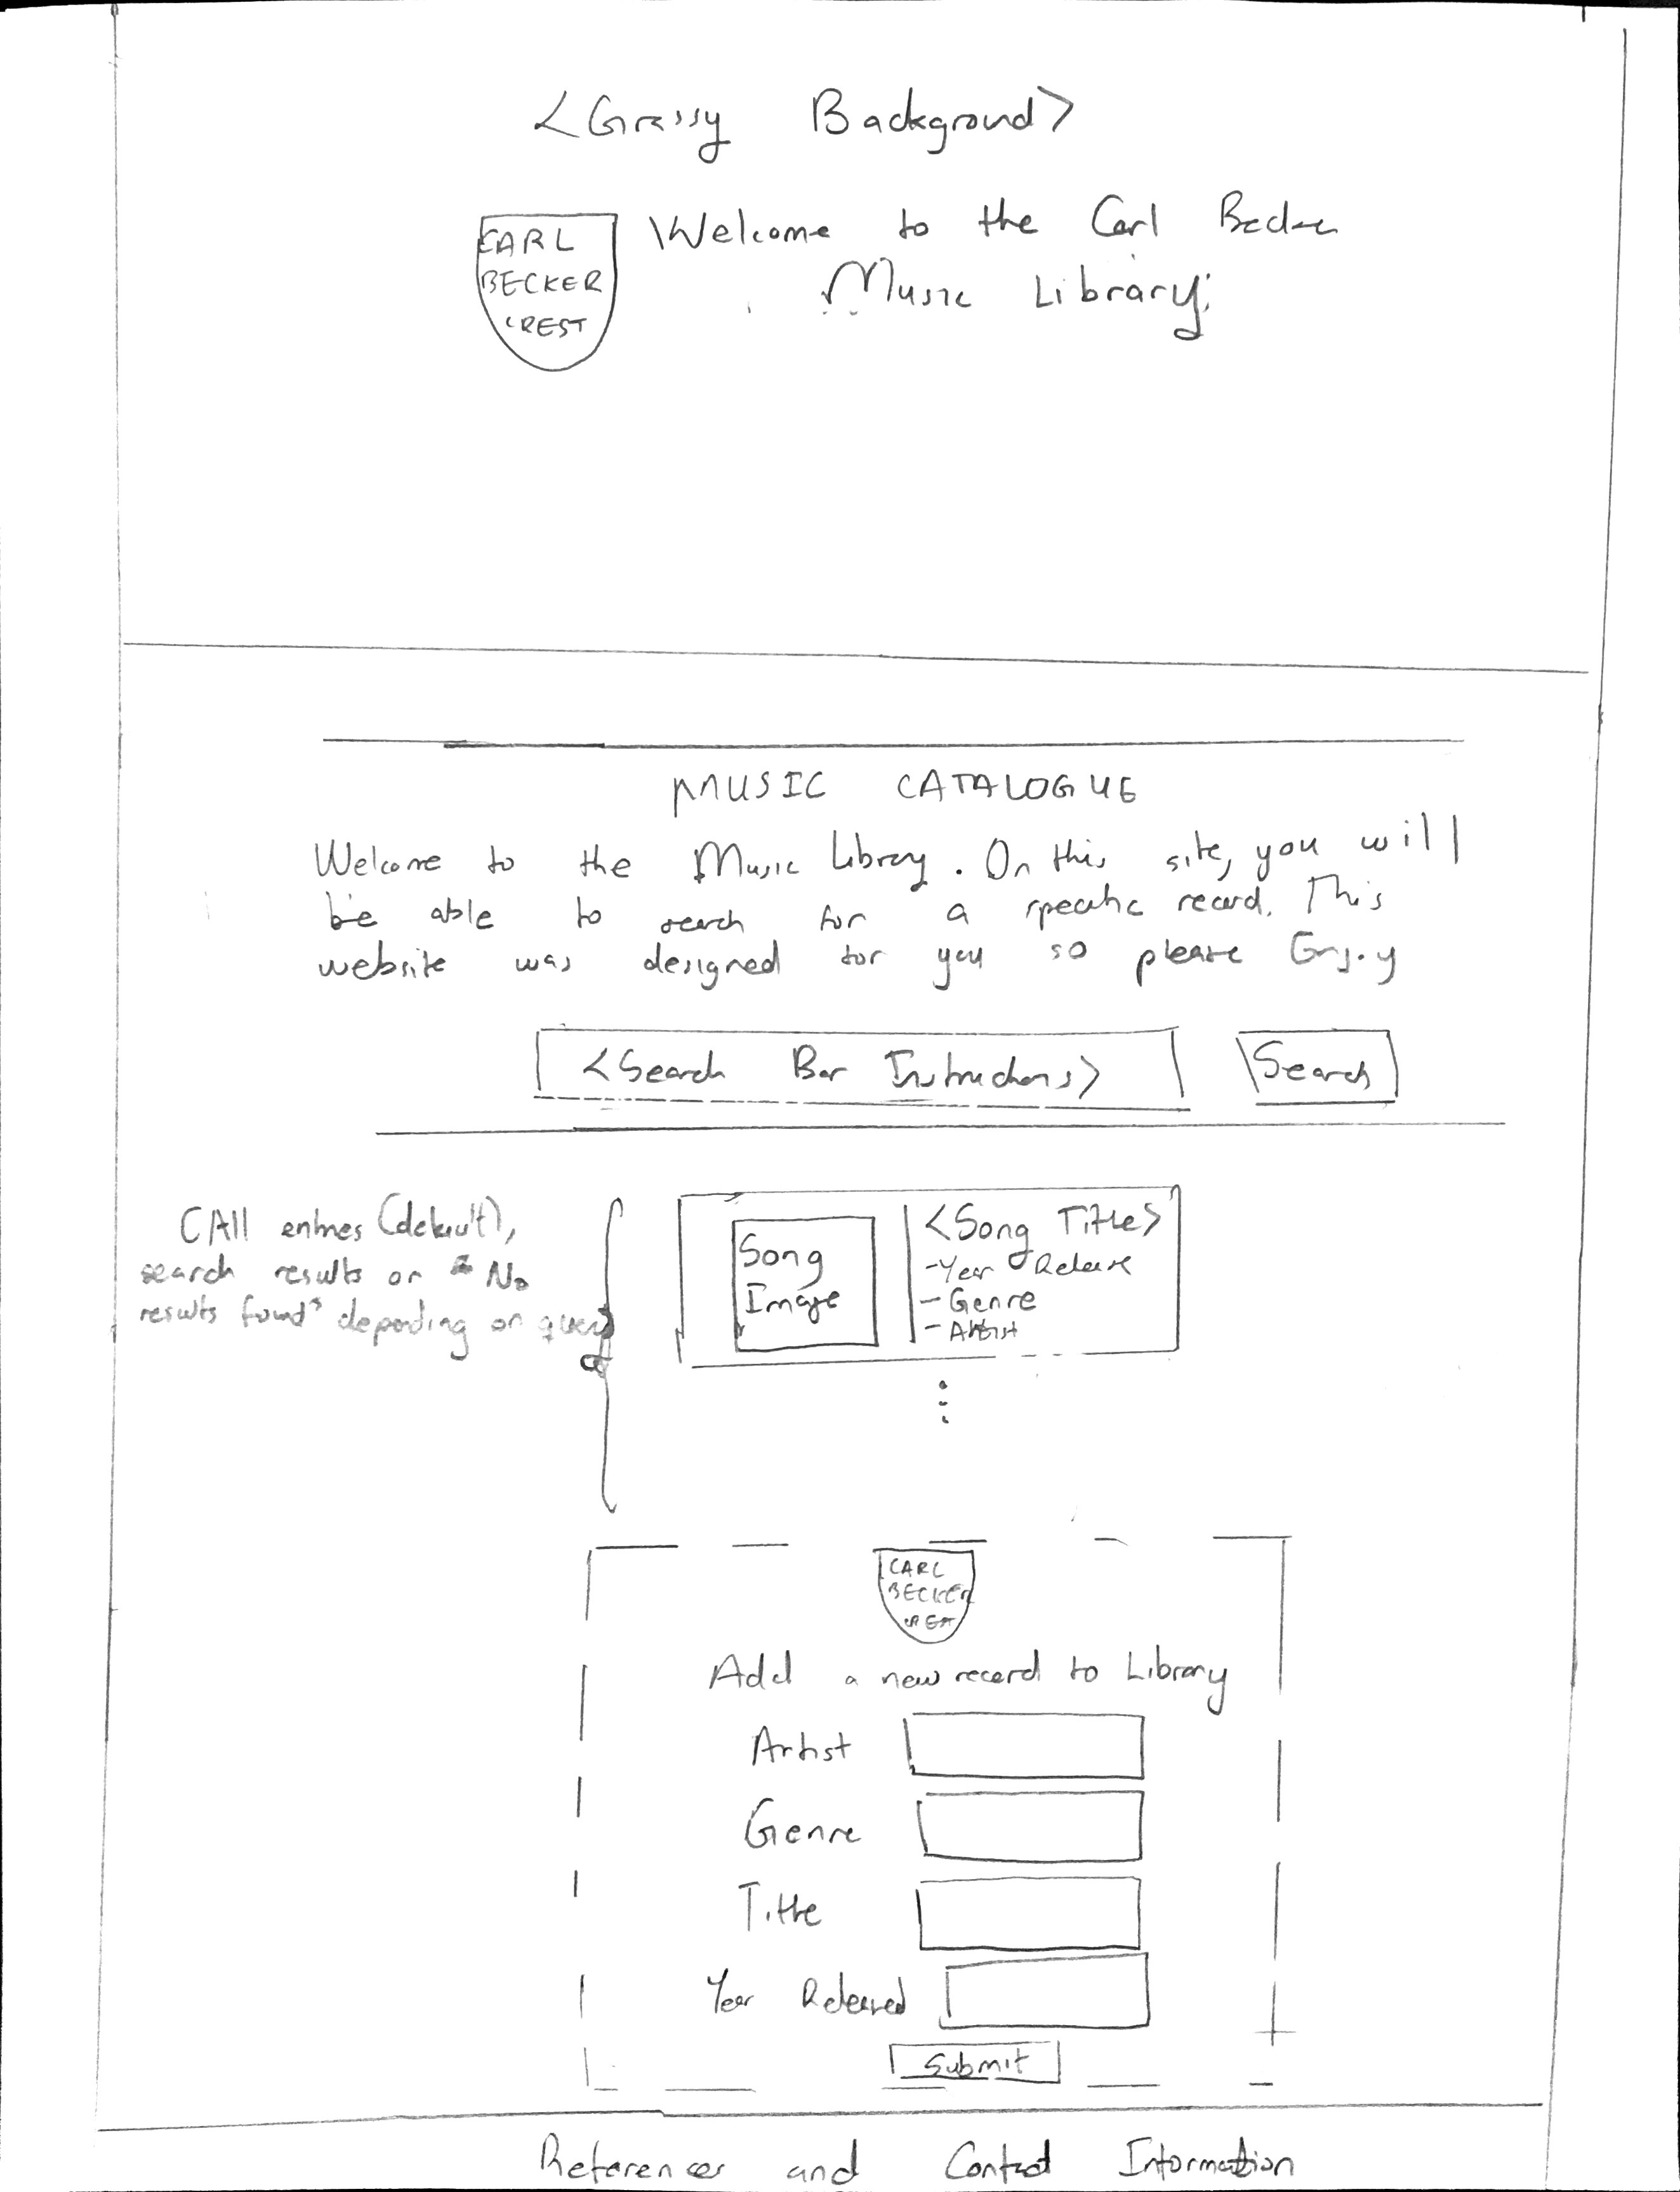 <Grassy Background>
CARL
BECKER
CREST
Welcome to the Carl Becker
Music Library
MUSIC CATALOGUE
Welcome to the Music Library. On this site, you will
be able to search for a specific record. This
website was designed for you so please Enjoy
<Search Bar Instructions>
Search
(All entries (default),
search results or "No
results found" depending on query
Song
Image
<Song Title>
-Year Release
- Genre
- Artist
CARL
BECKER
CREST
Add a new record to Library
Artist
Genre
Title
Year Released
Submit
References and Contact Information